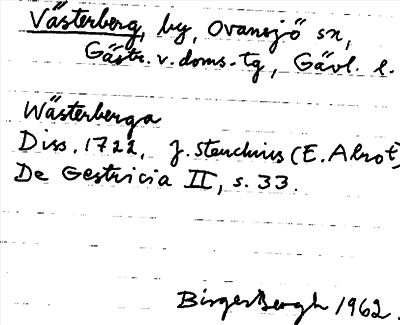 Västerberg, by, Ovansjö sn,
Gästr. v. doms.-tg, Gävl. l.
Wästerberga
Diss. 1722, J. Stenchius (E. Alrot)
De Gestricia II, s. 33.
Birger Bergh 1962.